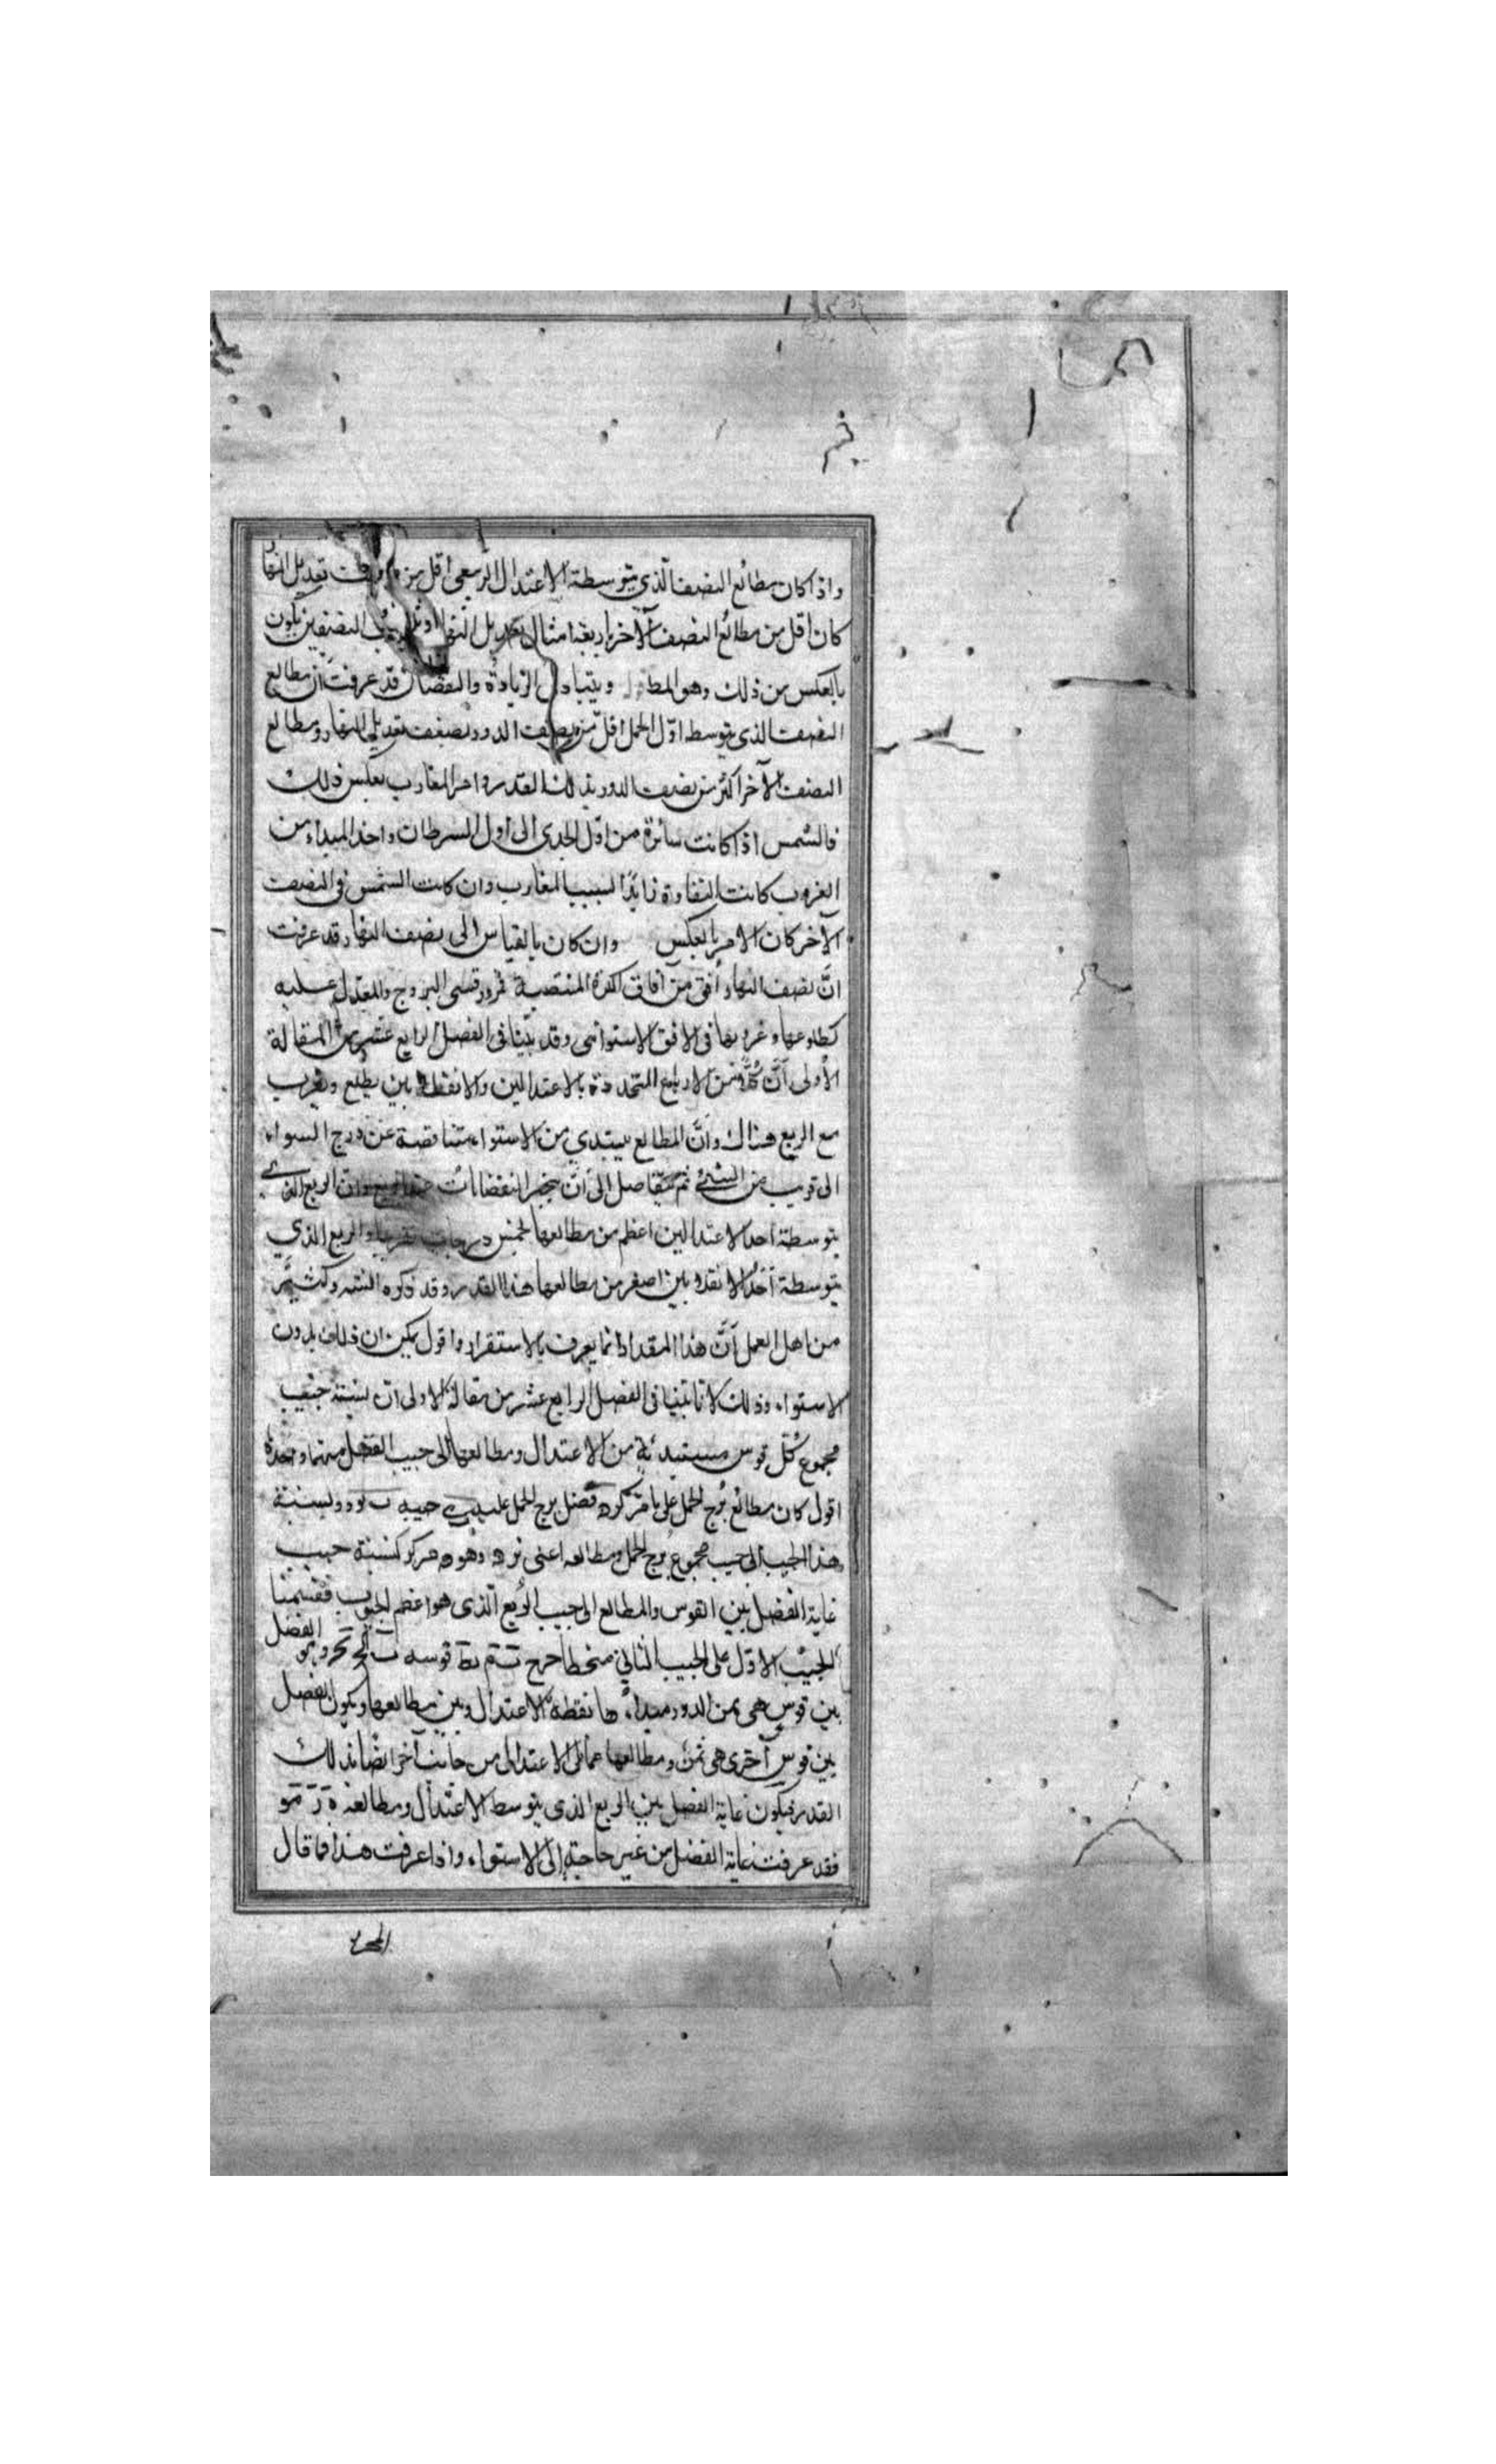 واذا كان مطالع النصف الذي يتوسطة الاعتدال الربيعي اقل من تعديل النهار
كان اقل من مطالع النصف الآخر اربعة امثال تعديل النهار النصفين يكون
بالعكس من ذلك وهو المط ويتبادل الزيادة والنقصان قد عرفت ان مطالع
النصف الذي يتوسط اول الحمل اقل من نصف الدور بضعف تعديل النهار ومطالع
النصف الآخر اكثر من نصف الدور بذلك القدر وامر المغارب بعكس ذلك
فالشمس اذا كانت سائرة من اول الجدي الى اول السرطان واخذ المبداء من
الغروب كانت التفاوة زايدا لسبب المغارب وان كانت الشمس في النصف
الآخر كان الامر بالعكس وان كان بالقياس الى نصف النهار قد عرفت
ان نصف النهار أفق من آفاق الكرة المنتصبة فمرور قسى البروج والمعدل عليه
كطلوعها وغروبها في الافق الاستوائى وقد بينا في الفصل الرابع عشر من المقالة
الأولى ان من الارباع المتحددة بالاعتدالين والانقلابين يطلع ويغرب
مع الربع هناك وان المطالع يبتدي من الاستواء متناقصة عن درج السواء
الى قريب من ثم الى ان وان الربع الذي
يتوسطة احد الاعتدالين اعظم من مطالعها بخمس درجات تقريبا والربع الذي
يتوسطة أحد الانقلابين اصغر من مطالعها هذا القدر وقد ذكره وكثير
من اهل العمل ان هذا المقدار انما يعرف بالاستقراء واقول يمكن ان ذلك بدون
الاستواء وذلك لانا بينا في الفصل الرابع عشر من مقالة الاولى ان نسبة جيب
مجموع كل قوس مبتدئة من الاعتدال ومطالعها الى جيب الفضل بينهما واحدة
اقول كان مطالع برج الحمل على ما فضل برج الحمل عليه جيبه ونسبة
هذا الجيب الى جيب مجموع برج الحمل ومطالعه اعنى وهو كنسبة جيب
غاية الفضل بين القوس والمطالع الى جيب الربع الذي هو اعظم الجيوب فقسمنا
الجيب الاول على الجيب الثاني منحطا خرج قوسه وهو الفضل
بين قوس هي ثمن الدور مبداءها نقطة الاعتدال وبين مطالعها ويكون الفضل
بين قوس آخرى هي ثمن ومطالعها مما يلى الاعتدال من جانب آخر ايضا بذلك
القدر فيكون غاية الفضل بين الربع الذي يتوسط الاعتدال ومطالعه
فقد عرفت غاية الفضل من غير حاجة الى الاستواء واذا عرفت هذا فما قال